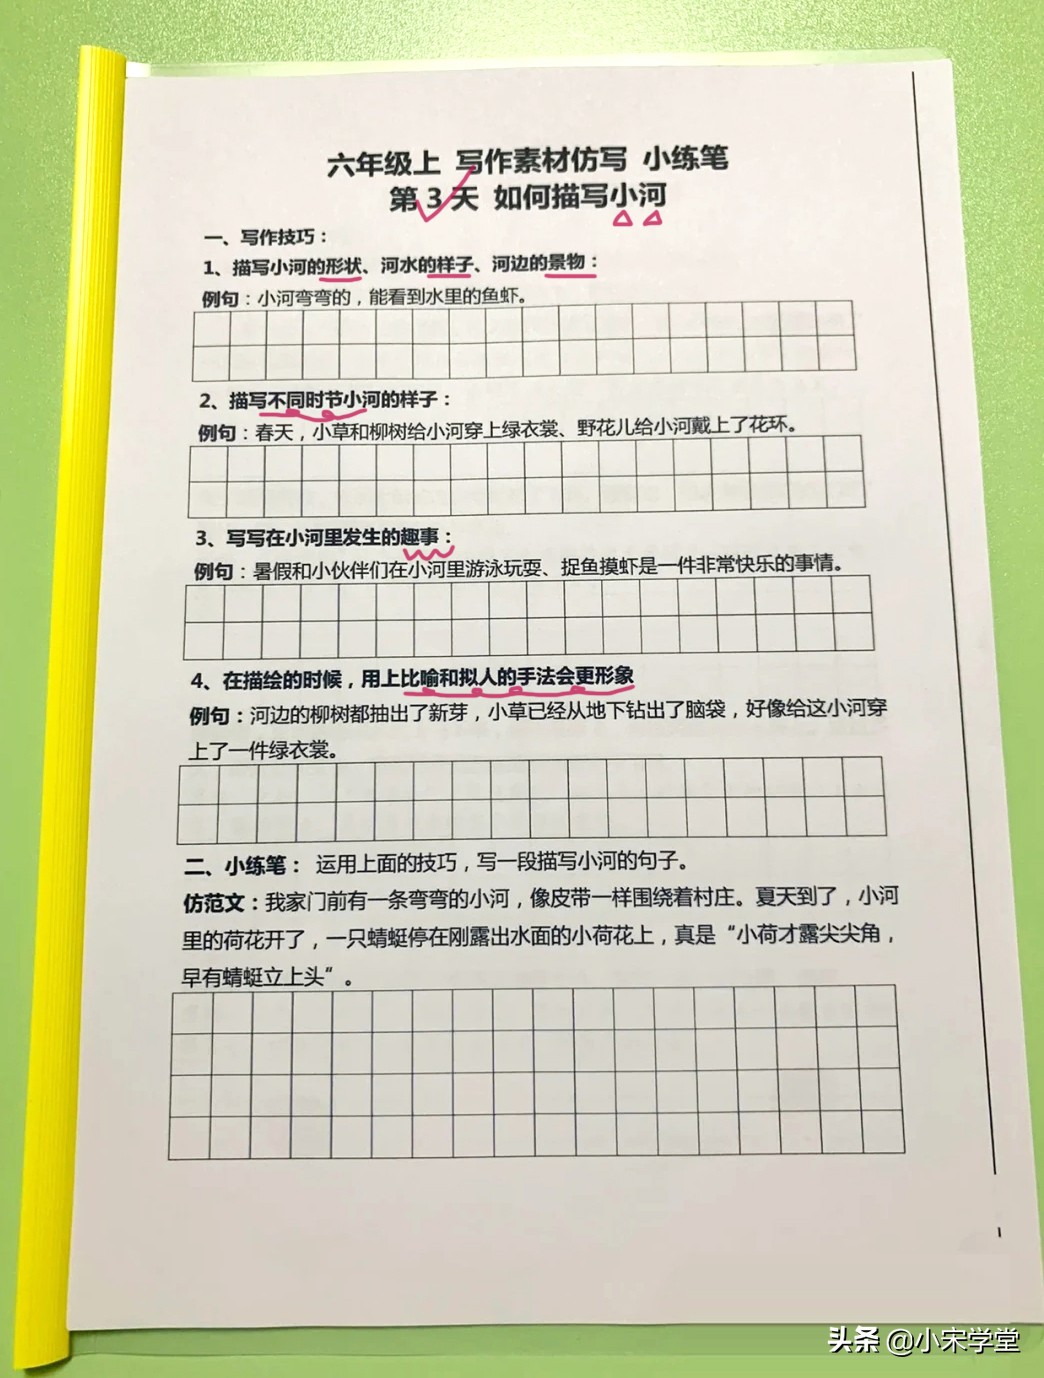 六年级上 写作素材仿写 小练笔
第3天 如何描写小河
一、写作技巧：
1、描写小河的形状、河水的样子、河边的景物：
例句：小河弯弯的，能看到水里的鱼虾。
2、描写不同时节小河的样子：
例句：春天，小草和柳树给小河穿上绿衣裳、野花儿给小河戴上了花环。
3、写写在小河里发生的趣事：
例句：暑假和小伙伴们在小河里游泳玩耍、捉鱼摸虾是一件非常快乐的事情。
4、在描绘的时候，用上比喻和拟人的手法会更形象
例句：河边的柳树都抽出了新芽，小草已经从地下钻出了脑袋，好像给这小河穿
上了一件绿衣裳。
二、小练笔： 运用上面的技巧，写一段描写小河的句子。
仿范文：我家门前有一条弯弯的小河，像皮带一样围绕着村庄。夏天到了，小河
里的荷花开了，一只蜻蜓停在刚露出水面的小荷花上，真是“小荷才露尖尖角，
早有蜻蜓立上头”。
1
头条 @小宋学堂